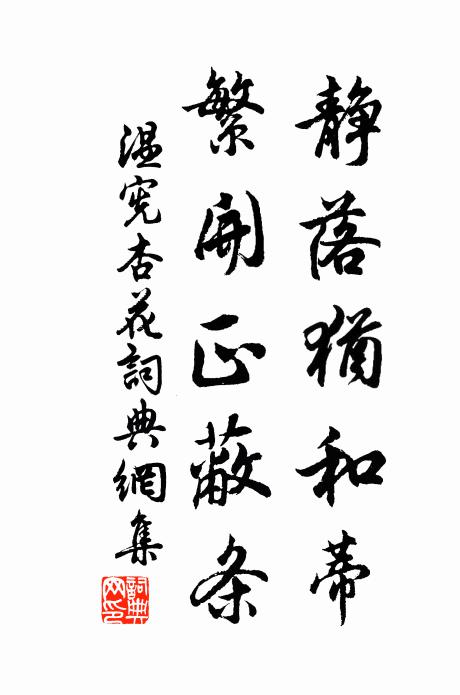 静落猶和蒂
繁開正蔽条
温宪杏花詞典網集
詞典网印